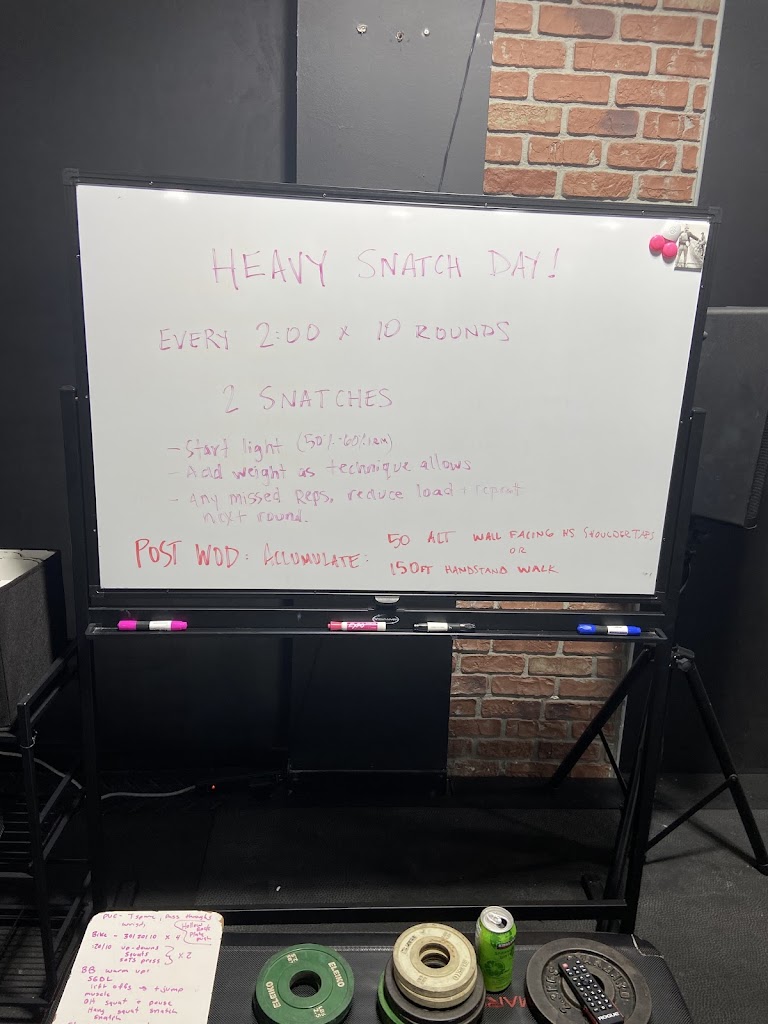 HEAVY SNATCH DAY!
EVERY 2:00 x 10 ROUNDS
2 SNATCHES
- Start light (50%-60% 1RM)
- Add weight as technique allows
- Any missed Reps, reduce load + repeat
next round.
POST WOD: ACCUMULATE:
50 ALT WALL FACING HS SHOULDER TAPS
OR
150FT HANDSTAND WALK
PVC - T spine, pass throughs
Hollow
Bike - 30/20/10 x 4
:20/10 up-downs
squats
sots press
x 2
BB warm up:
SGDL
muscle
OH squat + pause
Hang squat snatch
snatch
ELEIKO
2.5
ROGUE